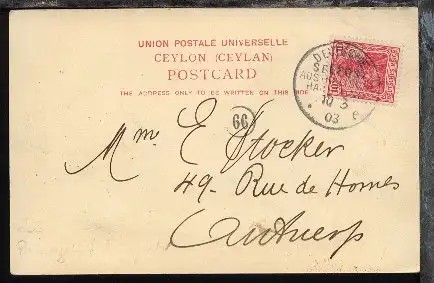 UNION POSTALE UNIVERSELLE
CEYLON (CEYLAN)
POSTCARD
THE ADDRESS ONLY TO BE WRITTEN ON THIS SIDE
10 3
03
66
Mme E Stocker
49- Rue de Homes
Antwerp